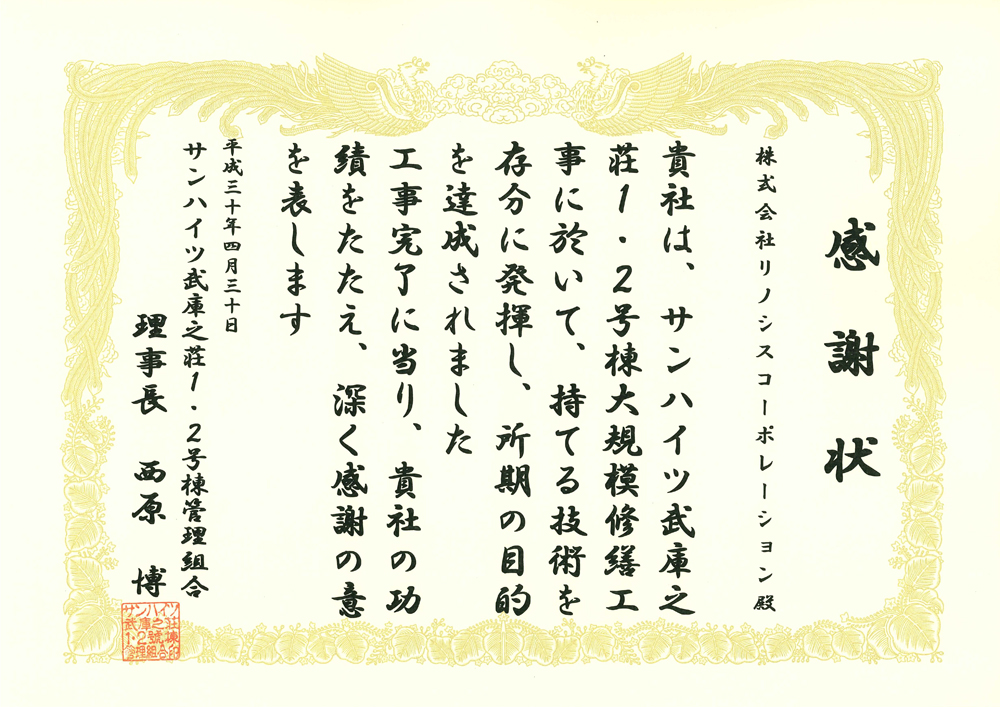 感謝状
株式会社リノシスコーポレーション殿
貴社は、サンハイツ武庫之
荘1・2号棟大規模修繕工
事に於いて、持てる技術を
存分に発揮し、所期の目的
を達成されました
工事完了に当り、貴社の功
績をたたえ、深く感謝の意
を表します
平成三十年四月三十日
サンハイツ武庫之荘1・2号棟管理組合
理事長 西原 博
サンハイツ
武庫之荘
1・2號棟
管理組合